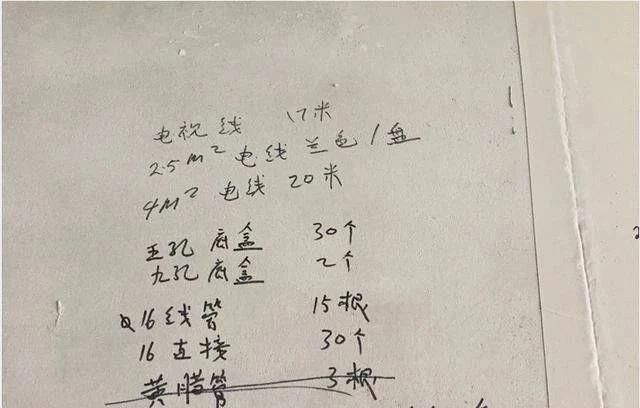 电视线 17米
2.5M² 电线 兰色 1盘
4M² 电线 20米
五孔 底盒 30个
九孔 底盒 2个
16线管 15根
16 直接 30个
黄腊管 3根